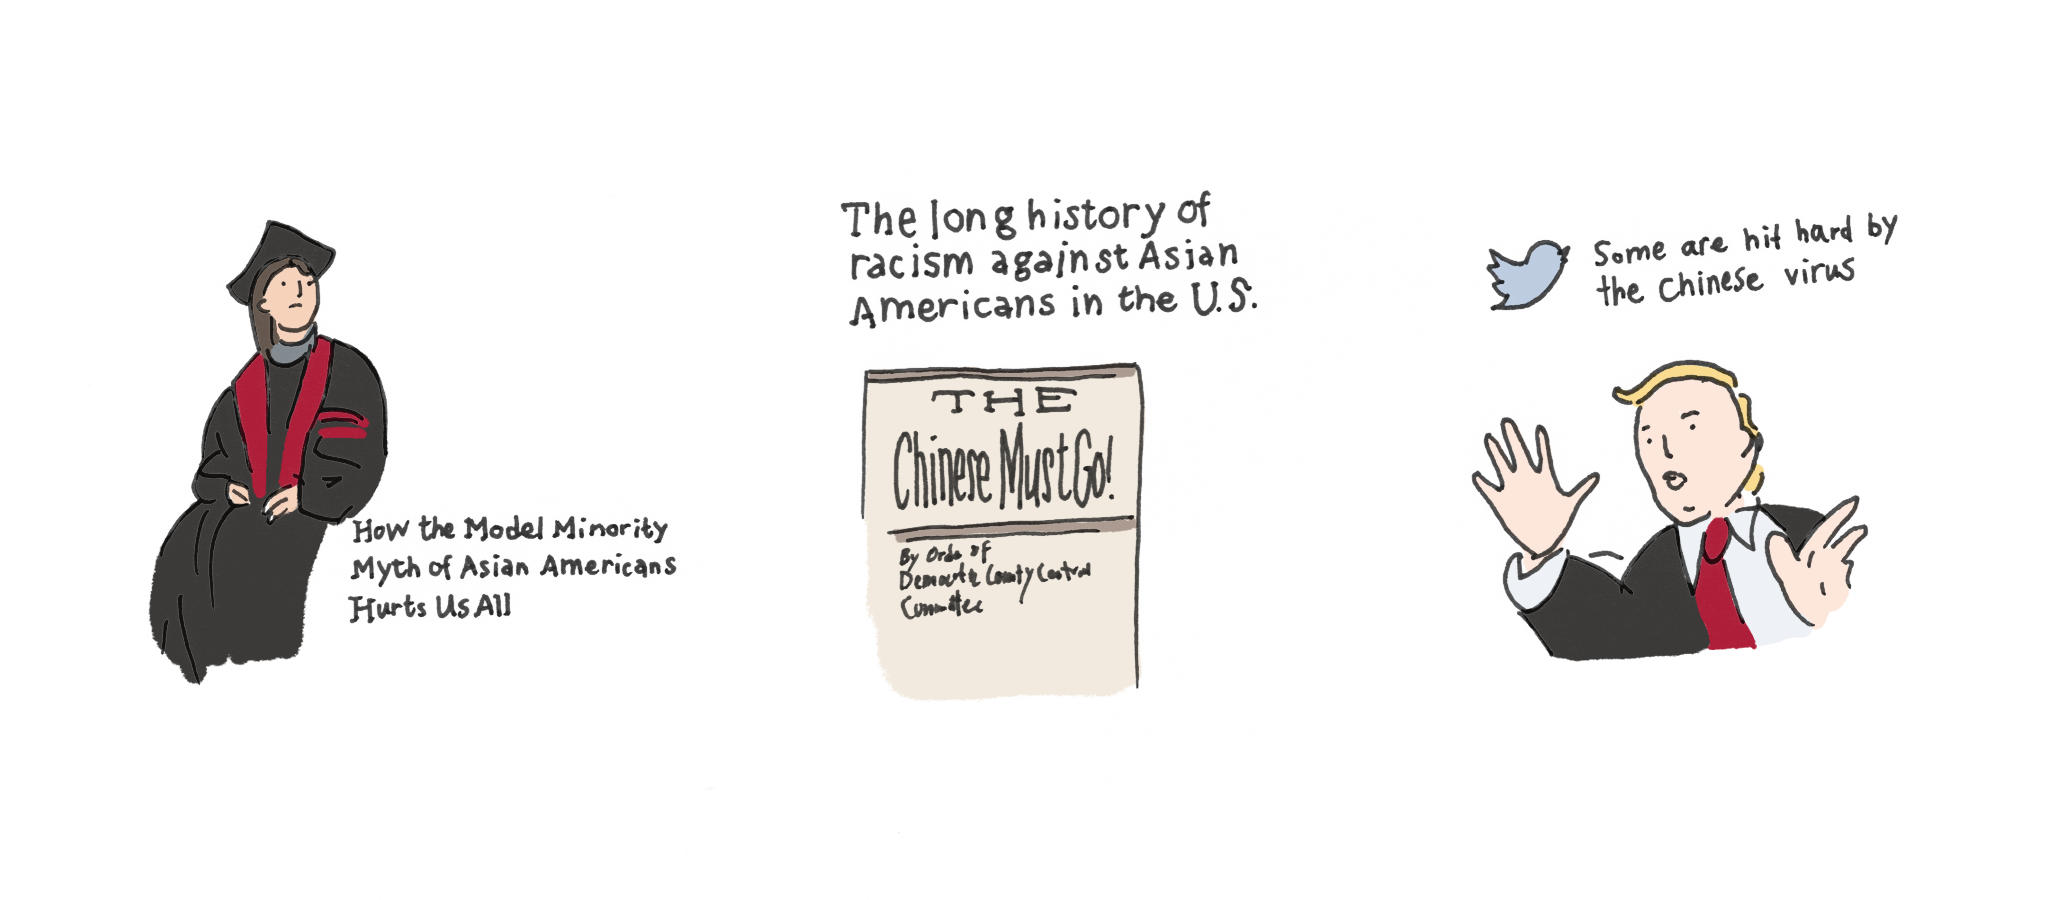 How the Model Minority
Myth of Asian Americans
Hurts Us All
The long history of
racism against Asian
Americans in the U.S.
THE
Chinese Must Go!
By Orde of
County Central
Committee
Some are hit hard by
the Chinese virus